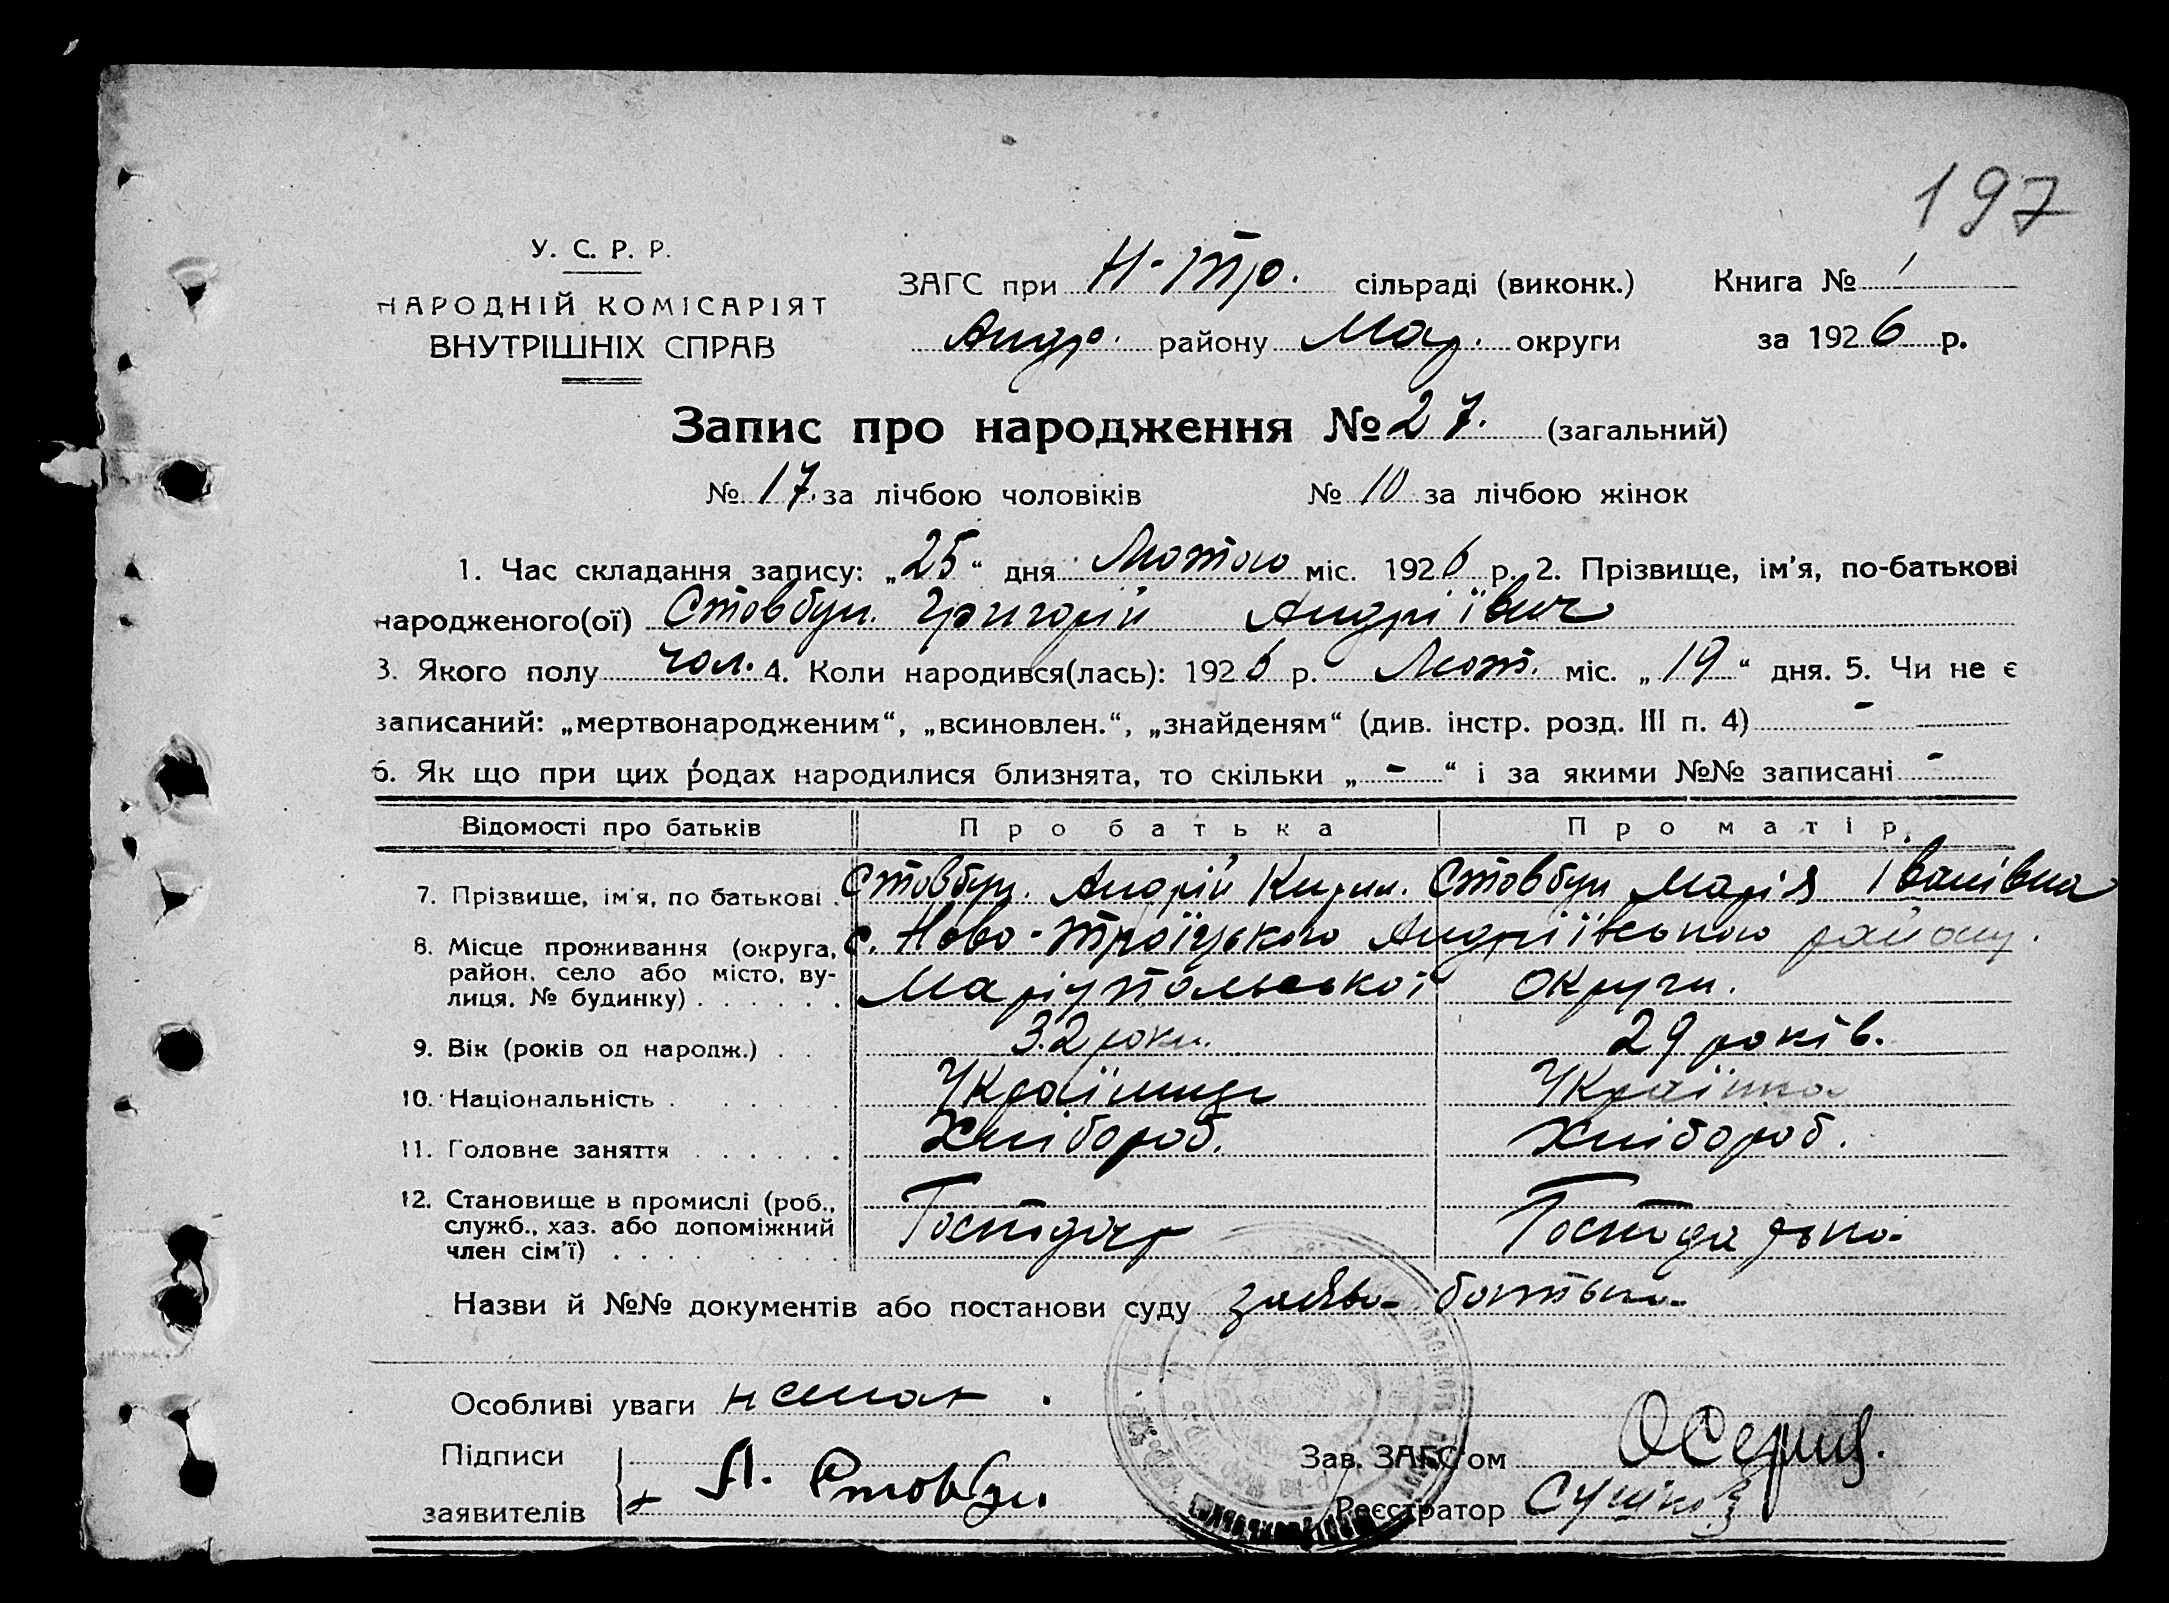 197
У. С. Р. Р.
НАРОДНІЙ КОМІСАРІЯТ
ВНУТРІШНІХ СПРАВ
ЗАГС при Н-Тр. сільраді (виконк.) Книга № 1
Андр. району Мар. округи за 1926 р.
Запис про народження № 27. (загальний)
№ 17. за лічбою чоловіків № 10 за лічбою жінок
1. Час складання запису: „25“ дня Лютого міс. 1926 р. 2. Прізвище, ім'я, по-батькові
народженого(ої) Стовбун. Григорій Андріївич
3. Якого полу чол. 4. Коли народився(лась): 1926 р. Лют. міс. „19“ дня. 5. Чи не є
записаний: „мертвонародженим“, „всиновлен.“, „знайденям“ (див. інстр. розд. III п. 4) -
6. Як що при цих родах народилися близнята, то скільки „-“ і за якими №№ записані -
Відомості про батьків Про батька Про матір
7. Прізвище, ім'я, по батькові . Стовбун. Андрій Кирил. Стовбун Марія Іванівна
8. Місце проживання (округа, с. Ново-Троїцького Андріївського району.
район, село або місто, ву-
лиця, № будинку) . . . . . . Маріупольської округи.
9. Вік (років од народж.) . . 32 роки. 29 років.
10. Національність . . . . . Українець Українка
11. Головне заняття . . . . . . Хлібороб. Хлібороб.
12. Становище в промислі (роб.,
служб., хаз. або допоміжний Господар Господарка
член сім'ї) . . . . . . . .
Назви й №№ документів або постанови суду заява батька
Особливі уваги немає .
Підписи Зав. ЗАГС'ом
заявителів А. Стовбун. Реєстратор